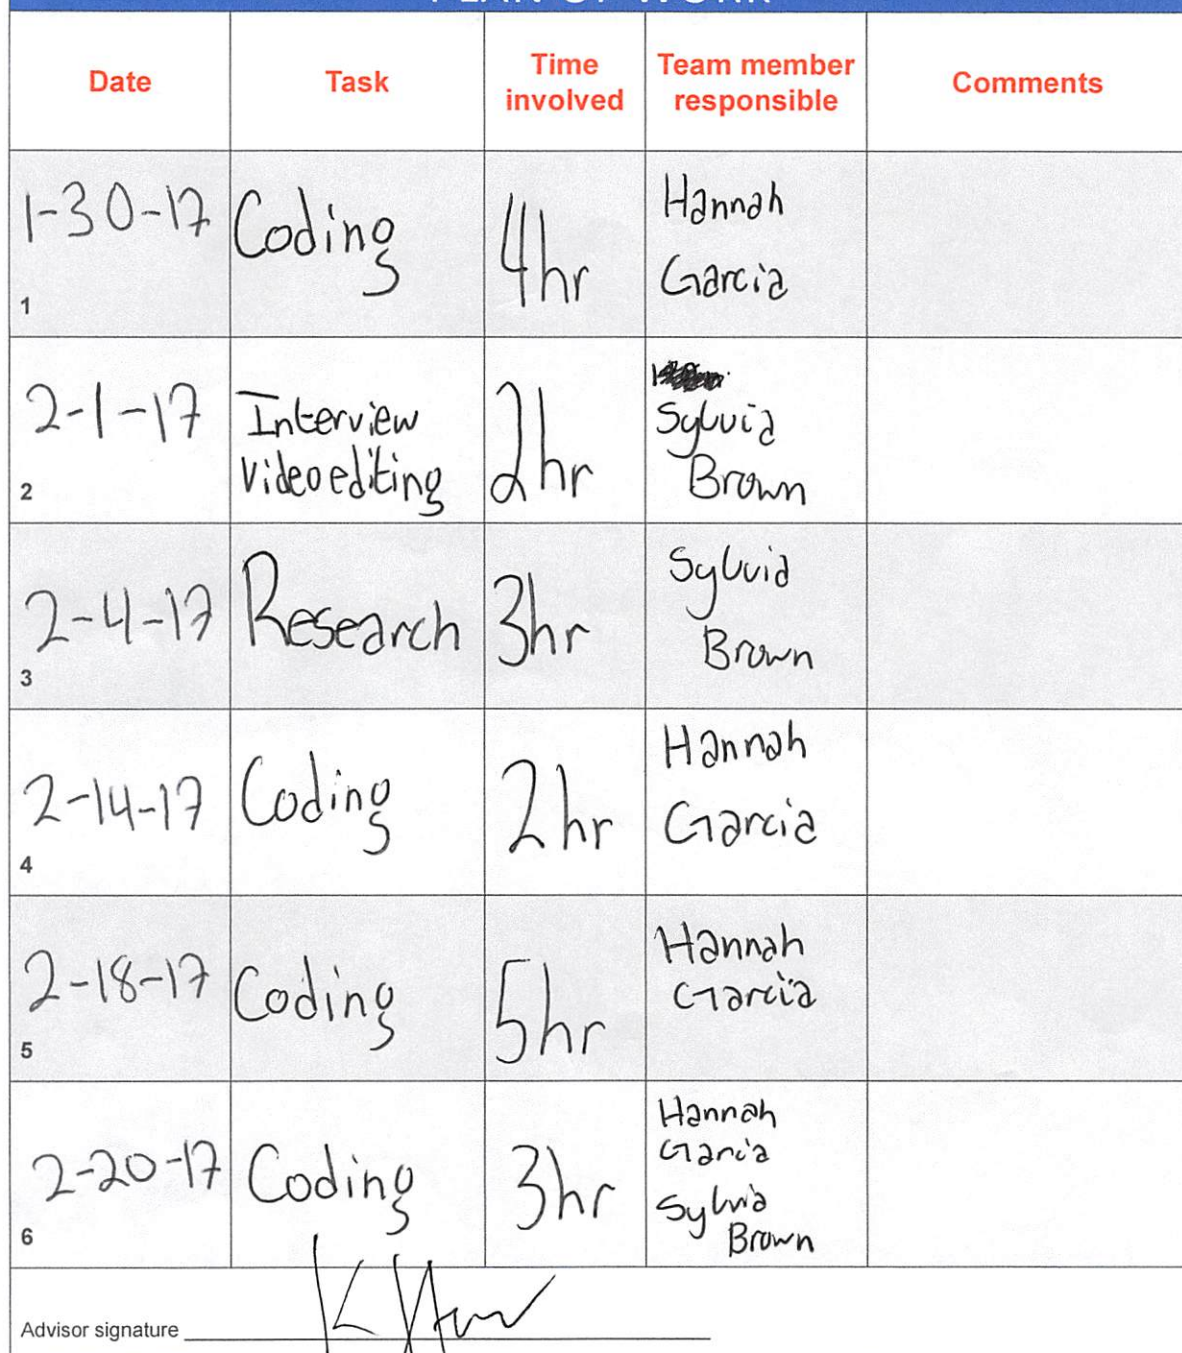 PLAN OF WORK
Date Task Time involved Team member responsible Comments
1-30-17 Coding 4hr Hannah
Garcia
1
2-1-17 Interview 2hr Sylvia
Video editing Brown
2
2-4-17 Research 3hr Sylvia
Brown
3
2-14-17 Coding 2hr Hannah
Garcia
4
2-18-17 Coding 5hr Hannah
Garcia
5
2-20-17 Coding 3hr Hannah
Garcia
Sylvia
Brown
6
Advisor signature